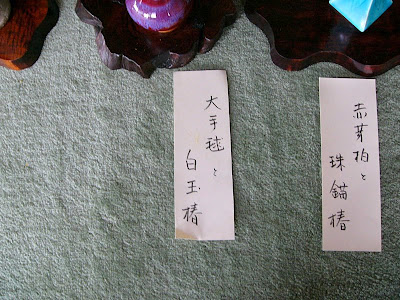 赤芽柏と
珠錨椿
大手毬と
白玉椿